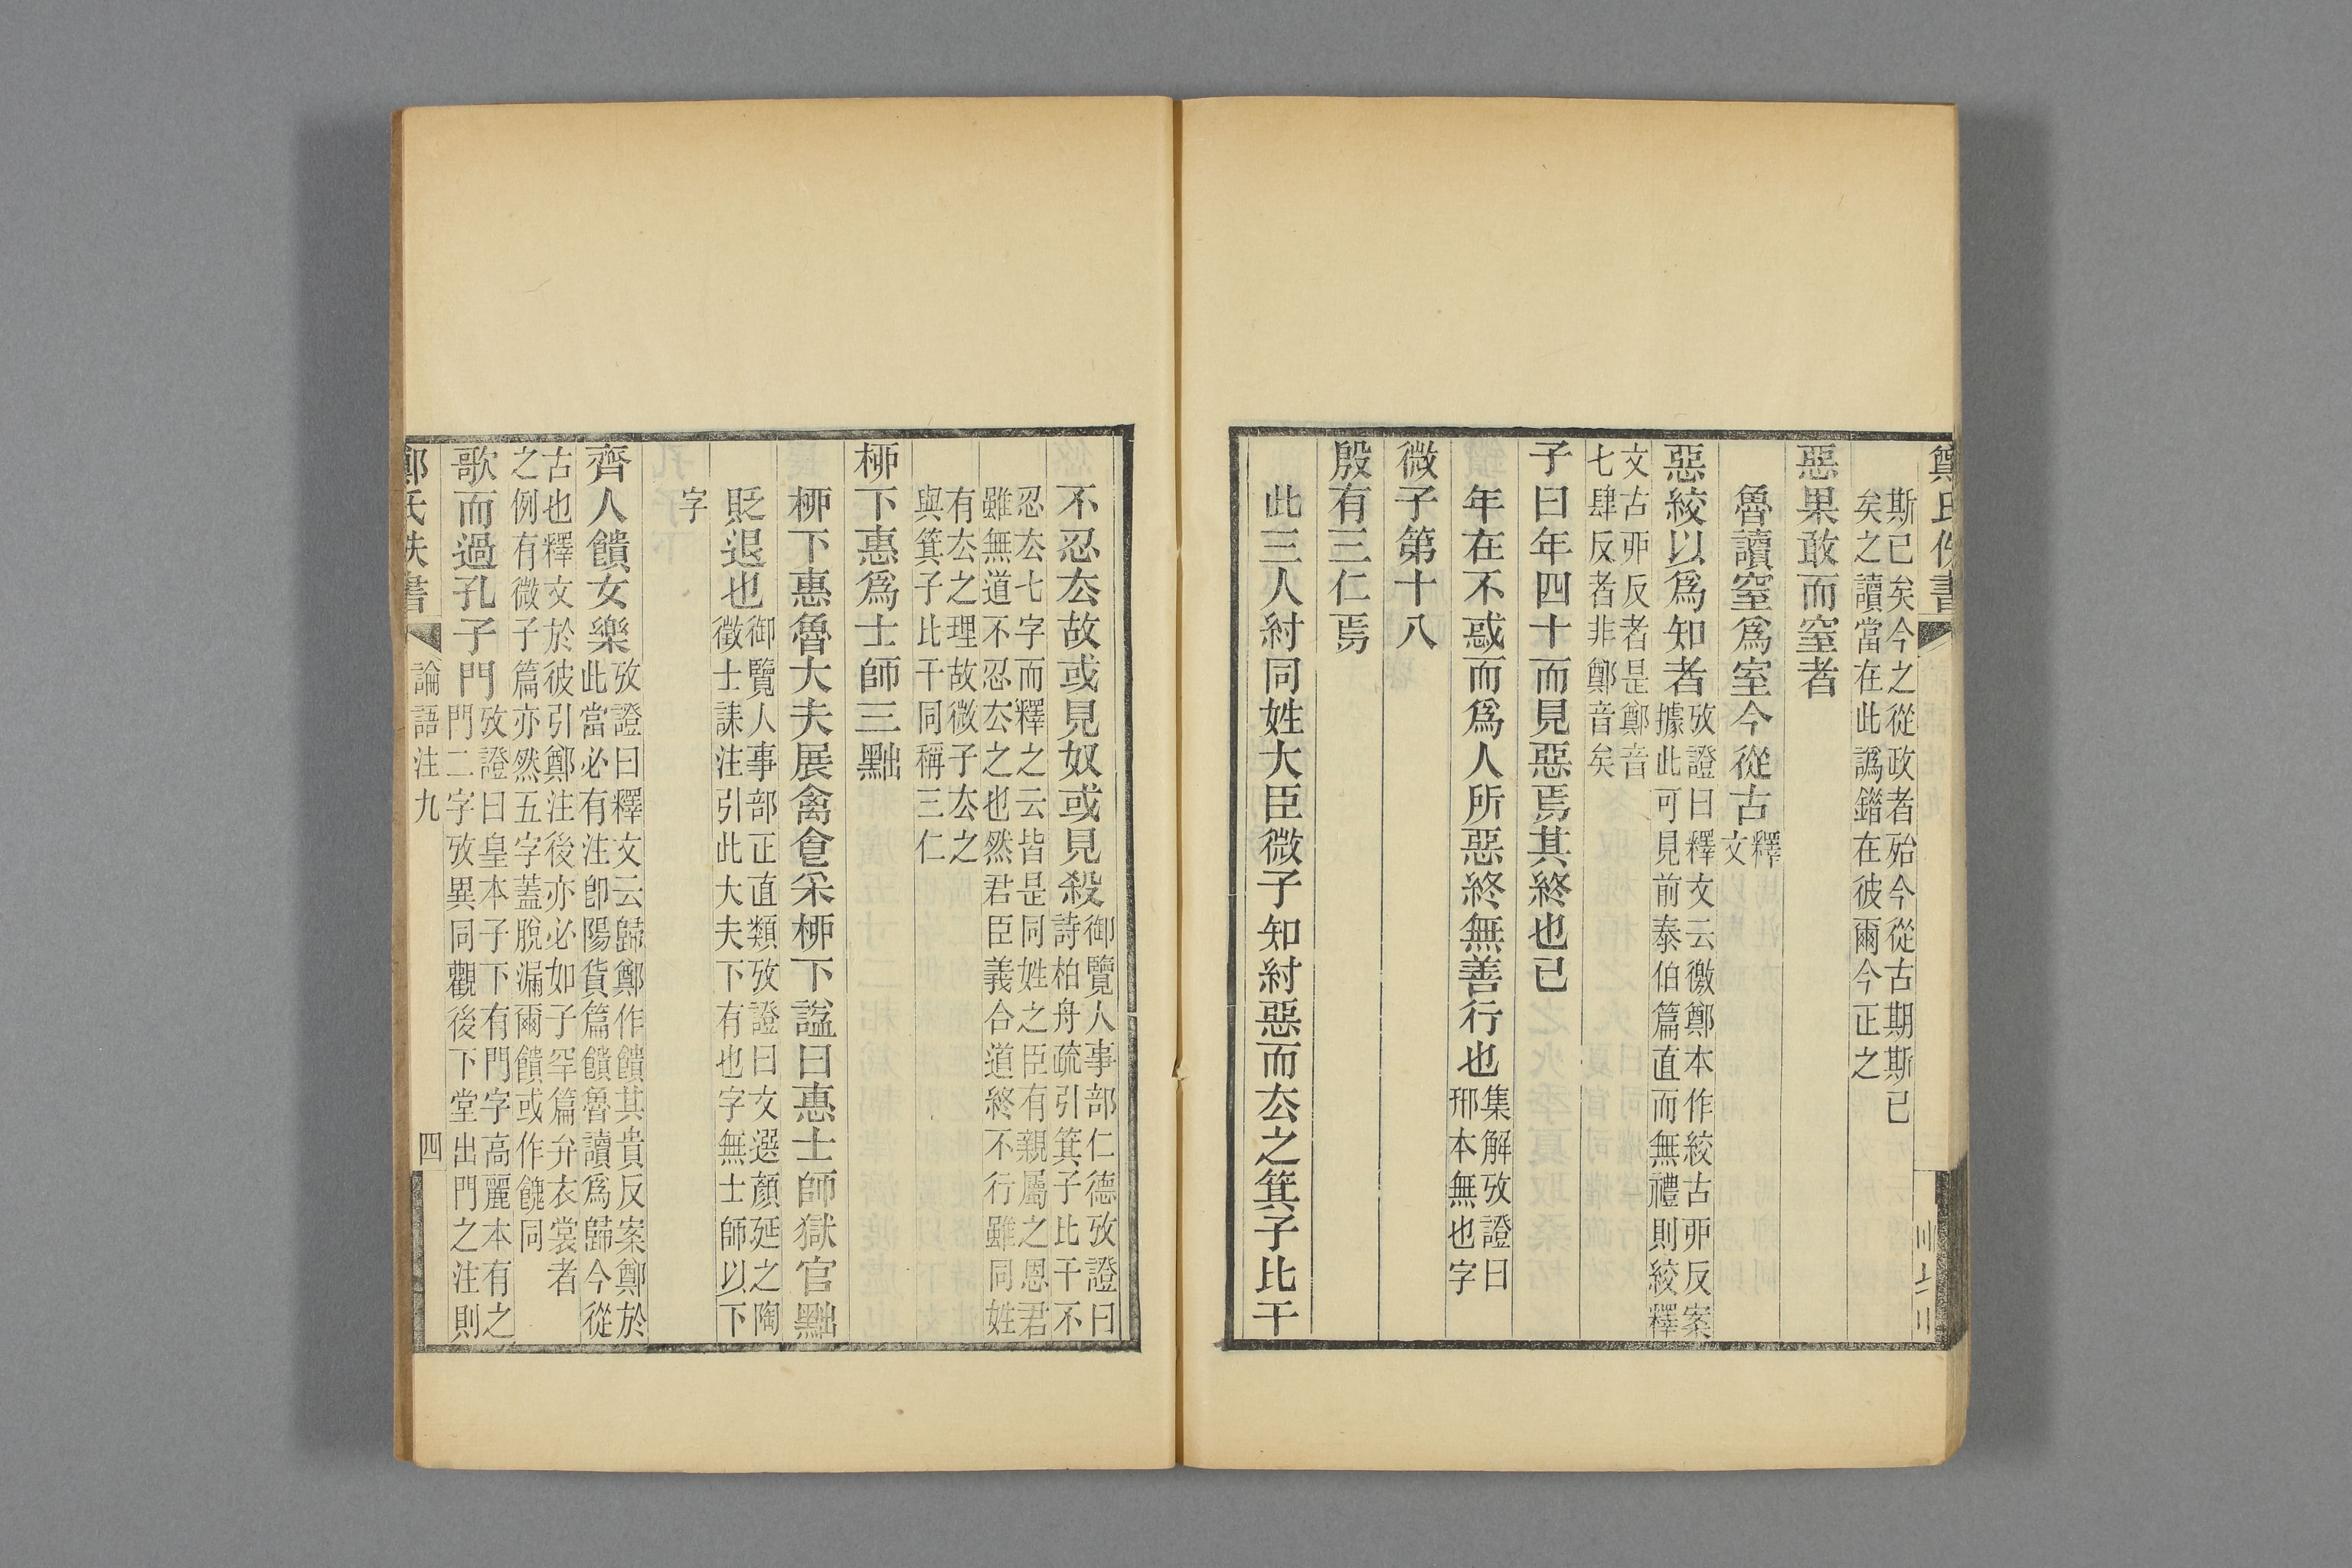 斯已矣今之從政者殆今從古期斯已
矣之讀當在此譌錯在彼爾今正之
惡果敢而窒者
魯讀窒爲室今從古
釋
文
惡絞以爲知者
攷證曰釋文云徼鄭本作絞古卯反案
據此可見前泰伯篇直而無禮則絞釋
文古卯反者是鄭音
七肆反者非鄭音矣
子曰年四十而見惡焉其終也已
年在不惑而爲人所惡終無善行也
集解攷證曰
邢本無也字
微子第十八
殷有三仁焉
此三人紂同姓大臣微子知紂惡而厺之箕子比干
不忍厺故或見奴或見殺
御覽人事部仁德攷證曰
詩柏舟疏引箕子比干不
忍厺七字而釋之云皆是同姓之臣有親屬之恩君
雖無道不忍厺之也然君臣義合道終不行雖同姓
有厺之理故微子厺之
與箕子比干同稱三仁
桺下惠爲士師三黜
桺下惠魯大夫展禽食采桺下諡曰惠士師獄官黜
貶退也
御覽人事部正直類攷證曰文選顏延之陶
徵士誄注引此大夫下有也字無士師以下
字
齊人饋女樂
攷證曰釋文云歸鄭作饋其貴反案鄭於
此當必有注卽陽貨篇饋魯讀爲歸今從
古也釋文於彼引鄭注後亦必如子罕篇弁衣裳者
之例有微子篇亦然五字蓋脫漏爾饋或作餽同
歌而過孔子門
攷證曰皇本子下有門字高麗本有之
門二字攷異同觀後下堂出門之注則
鄭氏佚書
論語注九
四